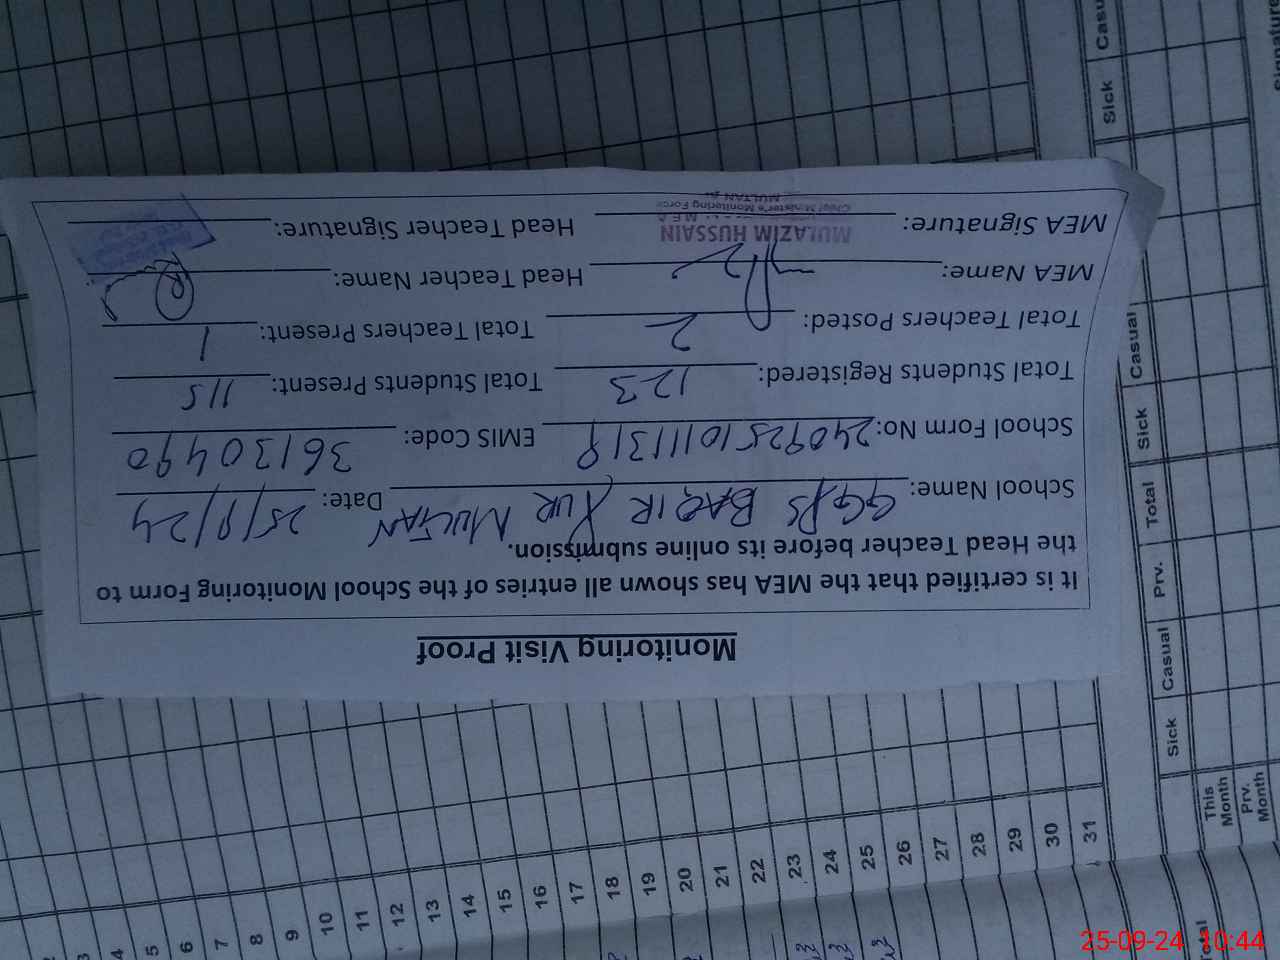 Monitoring Visit Proof
It is certified that the MEA has shown all entries of the School Monitoring Form to
the Head Teacher before its online submission.
School Name: GGPS BAQIR PUR MULTAN Date: 25/9/24
School Form No: EMIS Code: 36130490
Total Students Registered: 123 Total Students Present: 115
Total Teachers Posted: 2 Total Teachers Present: 1
MEA Name: Head Teacher Name:
MEA Signature: Head Teacher Signature:
MULAZIM HUSSAIN
Chief Minister's Monitoring Force
MULTAN
Sick Casual
Sick Casual
Total
Prv.
Sick Casual
This Month
Prv. Month
Total
4 5 6 7 8 9 10 11 12 13 14 15 16 17 18 19 20 21 22 23 24 25 26 27 28 29 30 31
25-09-24 10:44